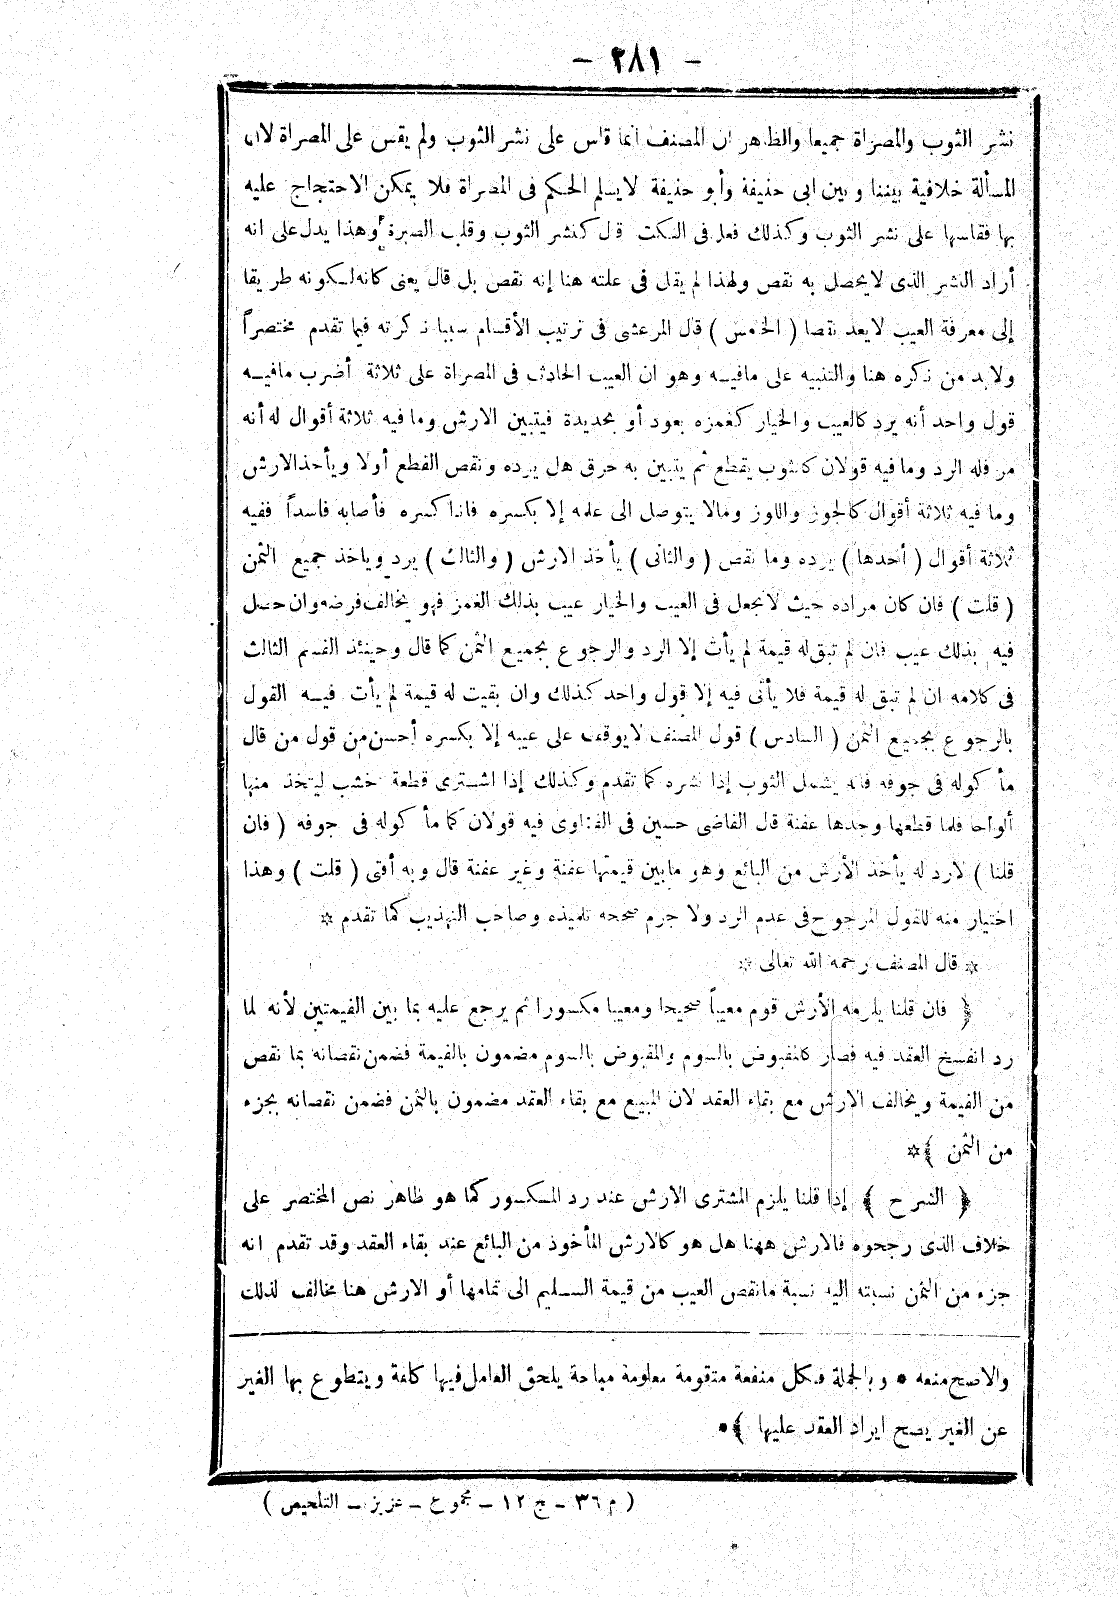 — ٢٨١ —
نشر الثوب والمصراة جميعا والظاهر ان المصنف انما قاس على نشر الثوب ولم يقس على المصراة لان
المسألة خلافية بيننا وبين ابى حنيفة وأبو حنيفة لايسلم الحكم فى المصراة فلا يمكن الاحتجاج عليه
بها فقاسها على نشر الثوب وكذلك فعل فى النكت قال كنشر الثوب وقلب الصبرة وهذا يدل على انه
أراد النشر الذى لايحصل به نقص ولهذا لم يقل فى علته هنا إنه نقص بل قال يعنى كانه لكونه طريقا
إلى معرفة العيب لايعد نقصا ( الخامس ) قال المرعشى فى ترتيب الأقسام سببا ذكرته فيما تقدم مختصراً
ولابد من ذكره هنا والتنبيه على مافيه وهو ان العيب الحادث فى المصراة على ثلاثة أضرب مافيه
قول واحد أنه يرد كالعيب والخيار كغمزه بعود أو بحديدة فيتبين الارش وما فيه ثلاثة أقوال له أنه
مر فله الرد وما فيه قولان كثوب يقطع ثم يتبين به حرق هل يرده ونقص القطع أولا ويأخذ الارش
وما فيه ثلاثة أقوال كالجوز واللوز ومالا يتوصل الى علمه إلا بكسره فاذا كسره فأصابه فاسداً ففيه
ثلاثة أقوال ( أحدها ) يرده وما نقص ( والثانى ) يأخذ الارش ( والثالث ) يرد وياخذ جميع الثمن
( قلت ) فان كان مراده حيث لانجعل فى العيب والخيار عيب بذلك الغمز فهو يخالف فرضه وان حصل
فيه بذلك عيب فان لم تبق له قيمة لم يأت إلا الرد والرجوع بجميع الثمن كما قال وحينئذ القسم الثالث
فى كلامه ان لم تبق له قيمة فلا يأتى فيه إلا قول واحد كذلك وان بقيت له قيمة لم يأت فيه القول
بالرجوع بجميع الثمن ( السادس ) قول المصنف لايوقف على عيبه إلا بكسره أحسن من قول من قال
مأكوله فى جوفه فانه يشمل الثوب إذا نشره كما تقدم وكذلك إذا اشترى قطعة خشب ليتخذ منها
ألواحا فلما قطعها وجدها عفنة قال القاضى حسين فى الفتاوى فيه قولان كما مأكوله فى جوفه ( فان
قلنا ) لارد له يأخذ الأرش من البائع وهو مابين قيمتها عفنة وغير عفنة قال وبه أفتى ( قلت ) وهذا
اختيار منه للقول المرجوح فى عدم الرد ولا جرم صححه تلميذه وصاحب التهذيب كما تقدم *
* قال المصنف رحمه الله تعالى *
﴿ فان قلنا يلزمه الأرش قوم معيباً صحيحا ومعيبا مكسورا ثم يرجع عليه بما بين القيمتين لأنه لما
رد انفسخ العقد فيه فصار كالمقبوض بالسوم والمقبوض بالسوم مضمون بالقيمة فضمن نقصانه بما نقص
من القيمة ويخالف الارش مع بقاء العقد لان المبيع مع بقاء العقد مضمون بالثمن فضمن نقصانه بجزء
من الثمن ﴾ *
﴿ الشرح ﴾ إذا قلنا يلزم المشترى الارش عند رد المكسور كما هو ظاهر نص المختصر على
خلاف الذى رجحوه فالارش ههنا هل هو كالارش المأخوذ من البائع عند بقاء العقد وقد تقدم انه
جزء من الثمن نسبته اليه نسبة مانقص العيب من قيمة السليم الى تمامها أو الارش هنا مخالف لذلك
والاصح منعه • وبالجملة فكل منفعة متقومة معلومة مباحة يلحق العامل فيها كلفة ويتطوع بها الغير
عن الغير يصح ايراد العقد عليها ﴾ •
( م ٣٦ – ج ١٢ – مجموع – عزيز – التلخيص )